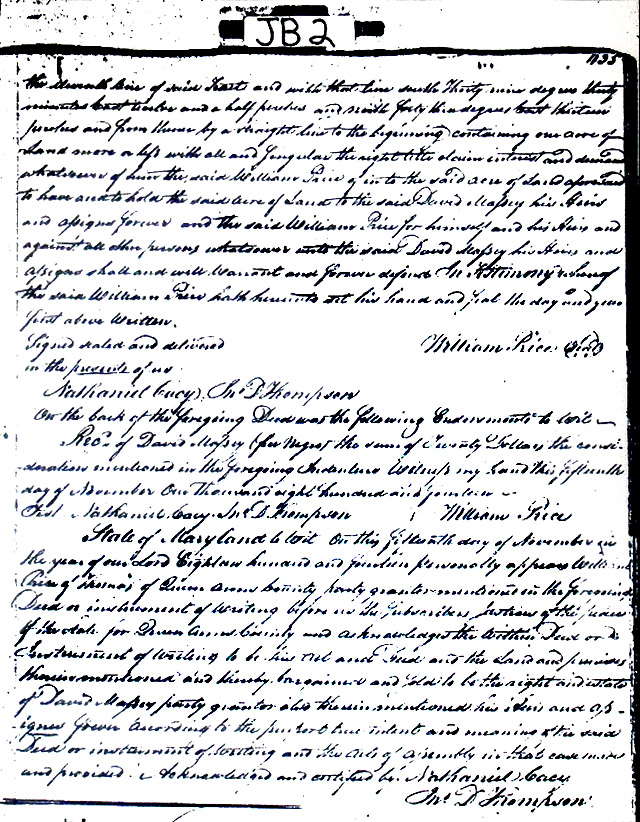 JB2
the eleventh line of said Tract and with that line south Thirty nine degrees thirty
minutes East twelve and a half perches and north forty three degrees East thirteen
perches and from thence by a straight line to the beginning containing one acre of
Land more or less with all and singular the right title claim interest and demand
whatsoever of him the said William Price of in to the said acre of Land aforesaid
to have and to hold the said acre of Land to the said David Massey his Heirs
and assigns forever and the said William Price for himself and his Heirs and
against all other persons whatsoever unto the said David Massey his Heirs and
assigns shall and will Warrant and forever defend In Testimony whereof
the said William Price hath hereunto set his hand and seal the day and year
first above Written.
Signed sealed and delivered William Price Seal
in the presence of us
Nathaniel Cacy, Jno D Thompson
On the back of the foregoing Deed was the following Endorsments to Wit
Recd. of David Massey the sum of Twenty Dollars the consi-
deration mentioned in the foregoing Indenture Witness my hand this fifteenth
day of November One thousand eight hundred and fourteen
Test Nathaniel Cacy. Jno. D. Thompson William Price
State of Maryland to Wit On this fifteenth day of November in
the year of our Lord Eighteen hundred and fourteen personally appears William
Price of Thomas of Queen Anns County party grantor mentioned in the foregoing
Deed or instrument of Writing before us the Subscribers Justices of the peace
of the state for Queen Anns County and acknowledges the Within Deed or
Instrument of Writing to be his act and Deed and the Land and premises
therein mentioned and thereby bargained and sold to be the right and estate
of David Massey party grantee also therein mentioned his Heirs and as-
signs forever according to the purport true intent and meaning of the said
Deed or instrument of Writing and the acts of assembly in that case made
and provided. Acknowledged and certified by Nathaniel Cacy
Jno. D Thompson